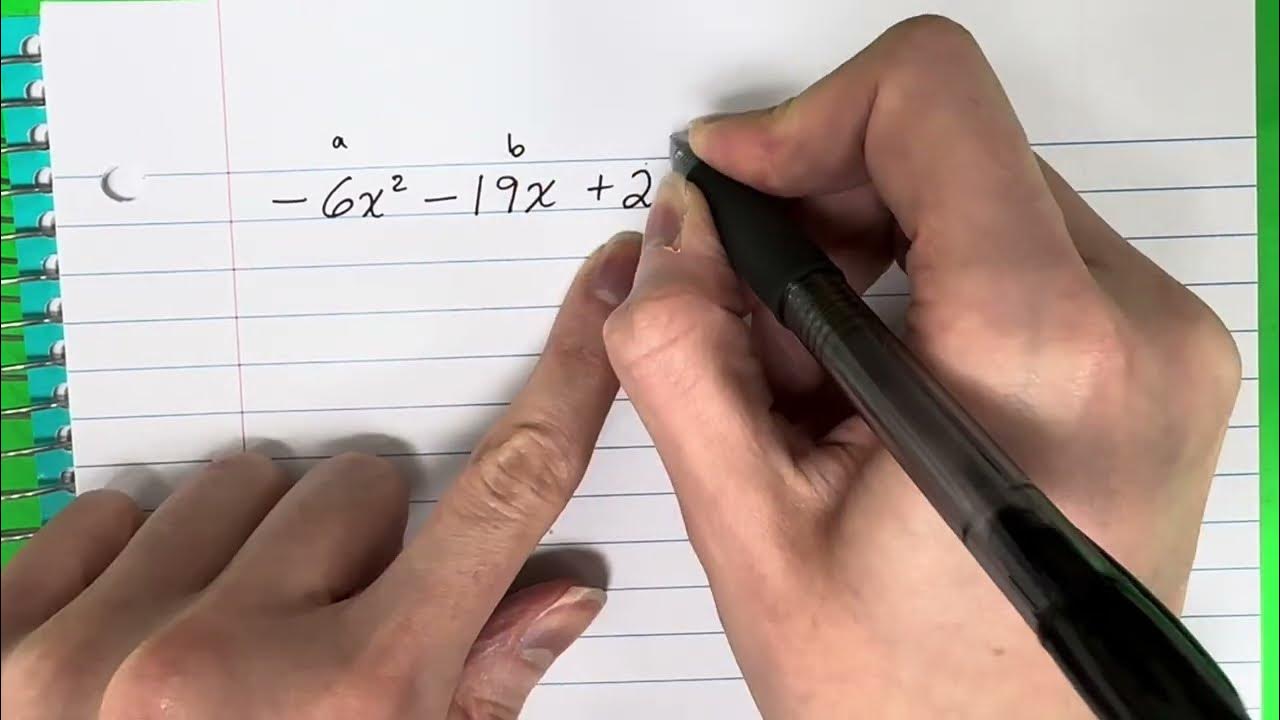 a b
-6x² -19x +2